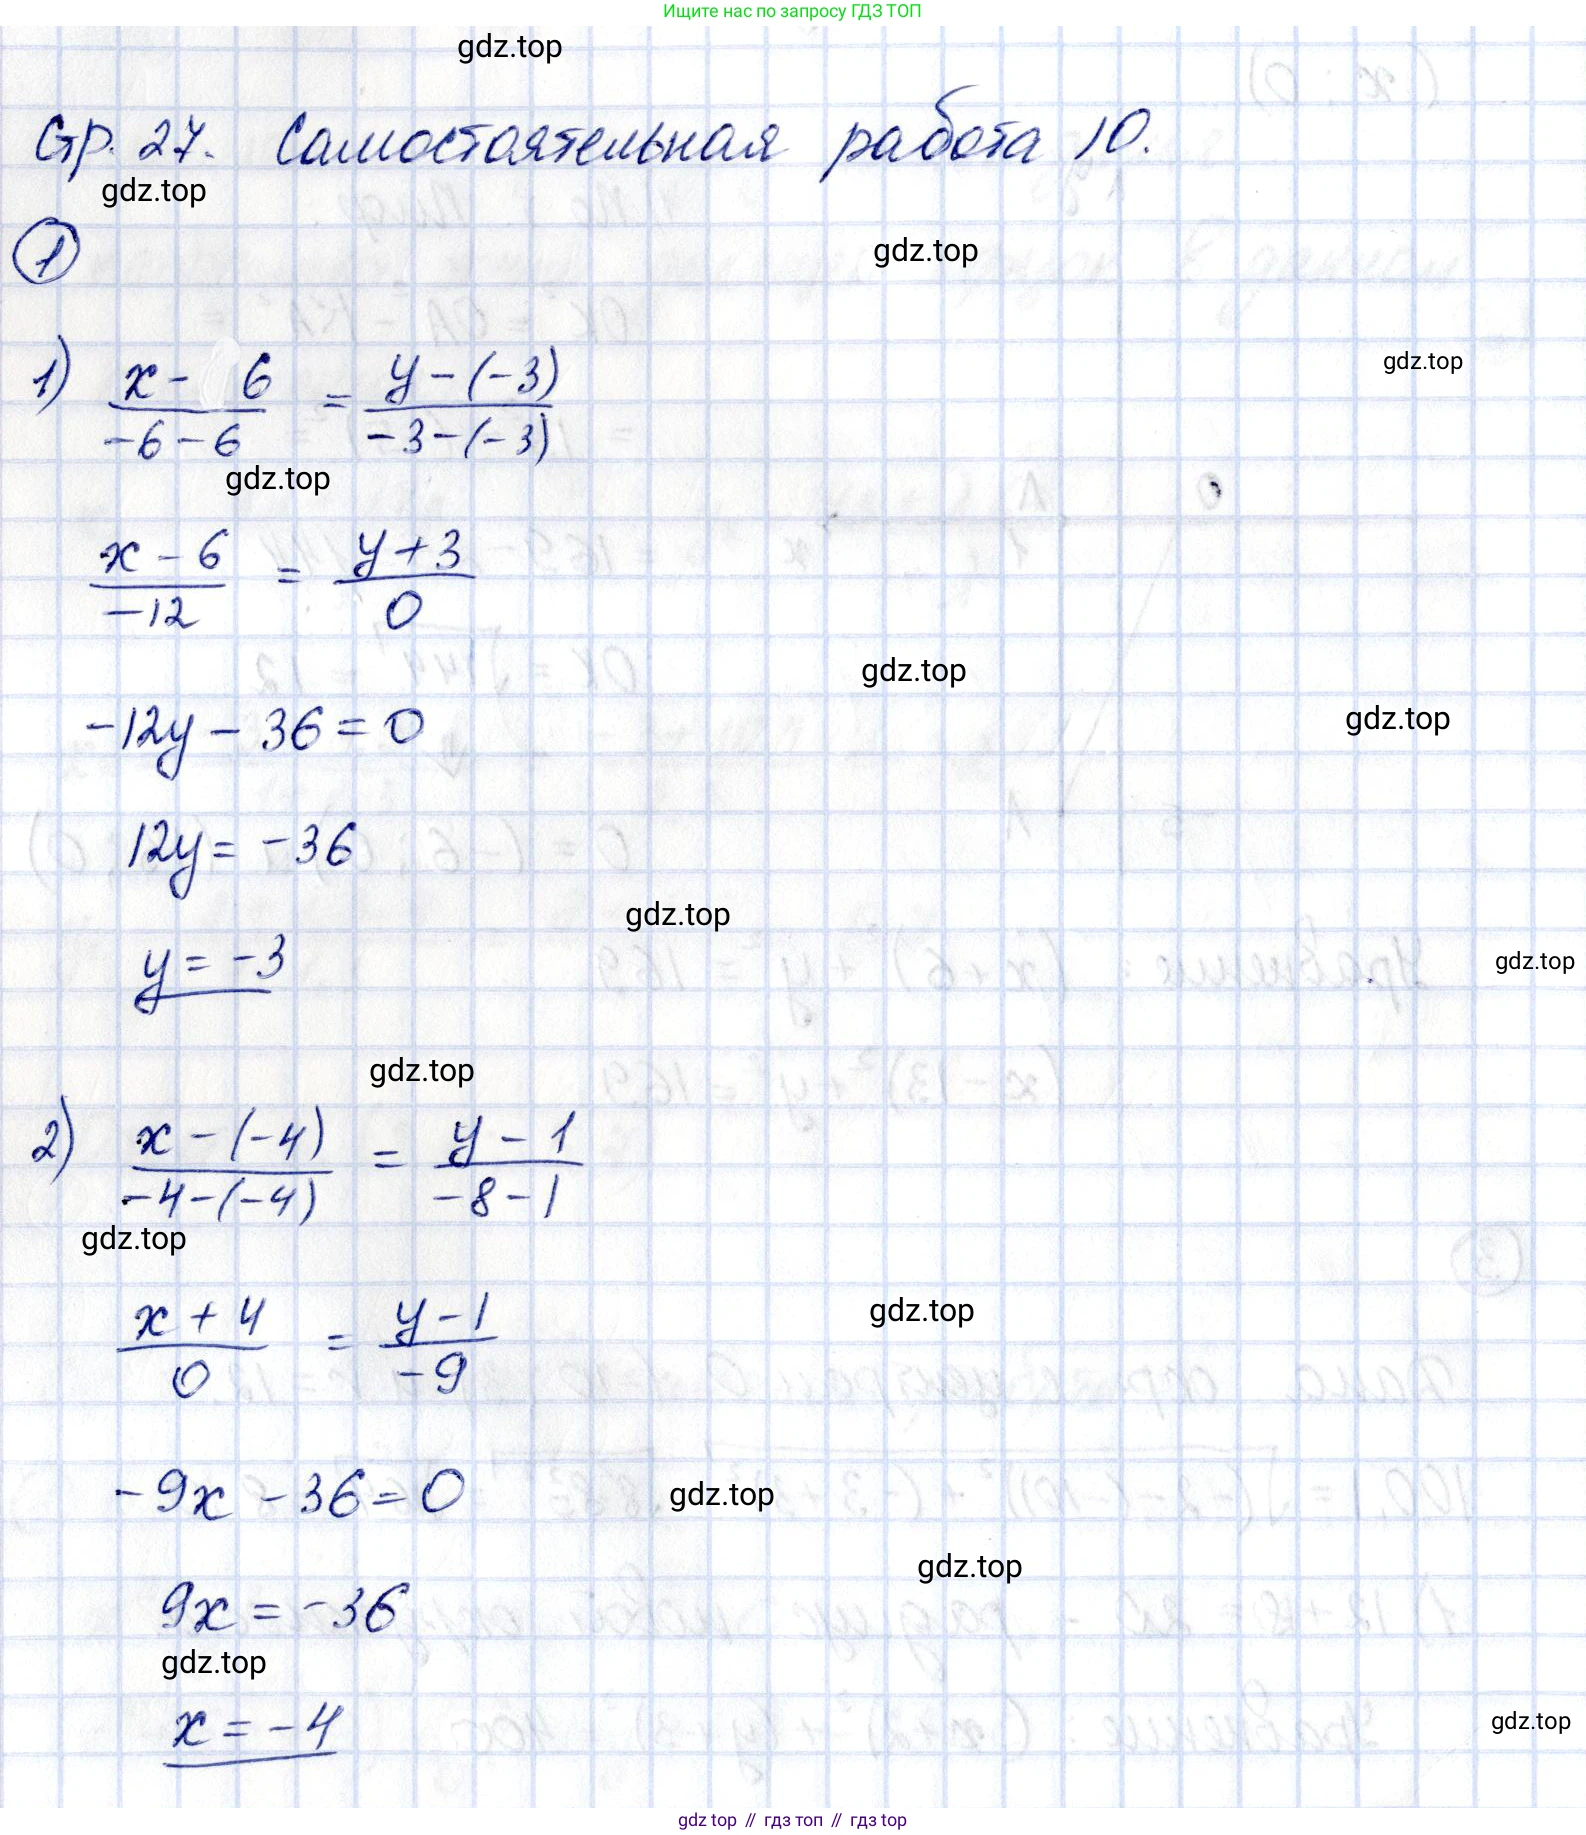 Ищите нас по запросу ГДЗ ТОП
gdz.top
Стр. 27. Самостоятельная работа 10.
gdz.top
1
gdz.top
1) (x - 6)/(-6 - 6) = (y - (-3))/(-3 - (-3))
gdz.top
gdz.top
(x - 6)/(-12) = (y + 3)/0
gdz.top
-12y - 36 = 0
gdz.top
12y = -36
gdz.top
y = -3
gdz.top
gdz.top
2) (x - (-4))/(-4 - (-4)) = (y - 1)/(-8 - 1)
gdz.top
(x + 4)/0 = (y - 1)/(-9)
gdz.top
-9x - 36 = 0
gdz.top
gdz.top
9x = -36
gdz.top
x = -4
gdz.top
gdz top // гдз топ // гдз top